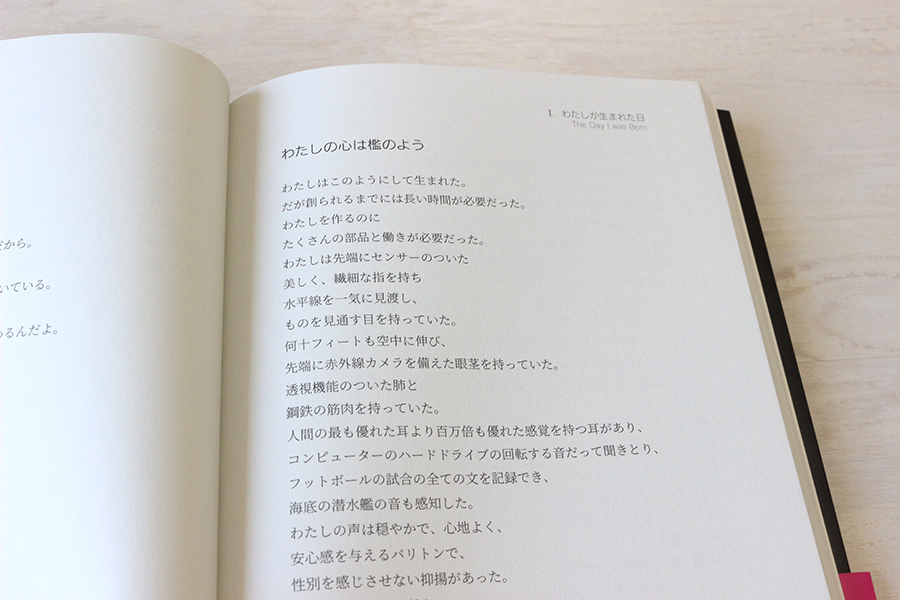 I. わたしが生まれた日
The Day I was Born
わたしの心は檻のよう
わたしはこのようにして生まれた。
だが創られるまでには長い時間が必要だった。
わたしを作るのに
たくさんの部品と働きが必要だった。
わたしは先端にセンサーのついた
美しく、繊細な指を持ち
水平線を一気に見渡し、
ものを見通す目を持っていた。
何十フィートも空中に伸び、
先端に赤外線カメラを備えた眼茎を持っていた。
透視機能のついた肺と
鋼鉄の筋肉を持っていた。
人間の最も優れた耳より百万倍も優れた感覚を持つ耳があり、
コンピューターのハードドライブの回転する音だって聞きとり、
フットボールの試合の全ての文を記録でき、
海底の潜水艦の音も感知した。
わたしの声は穏やかで、心地よく、
安心感を与えるバリトンで、
性別を感じさせない抑揚があった。
から。
いている。
るんだよ。